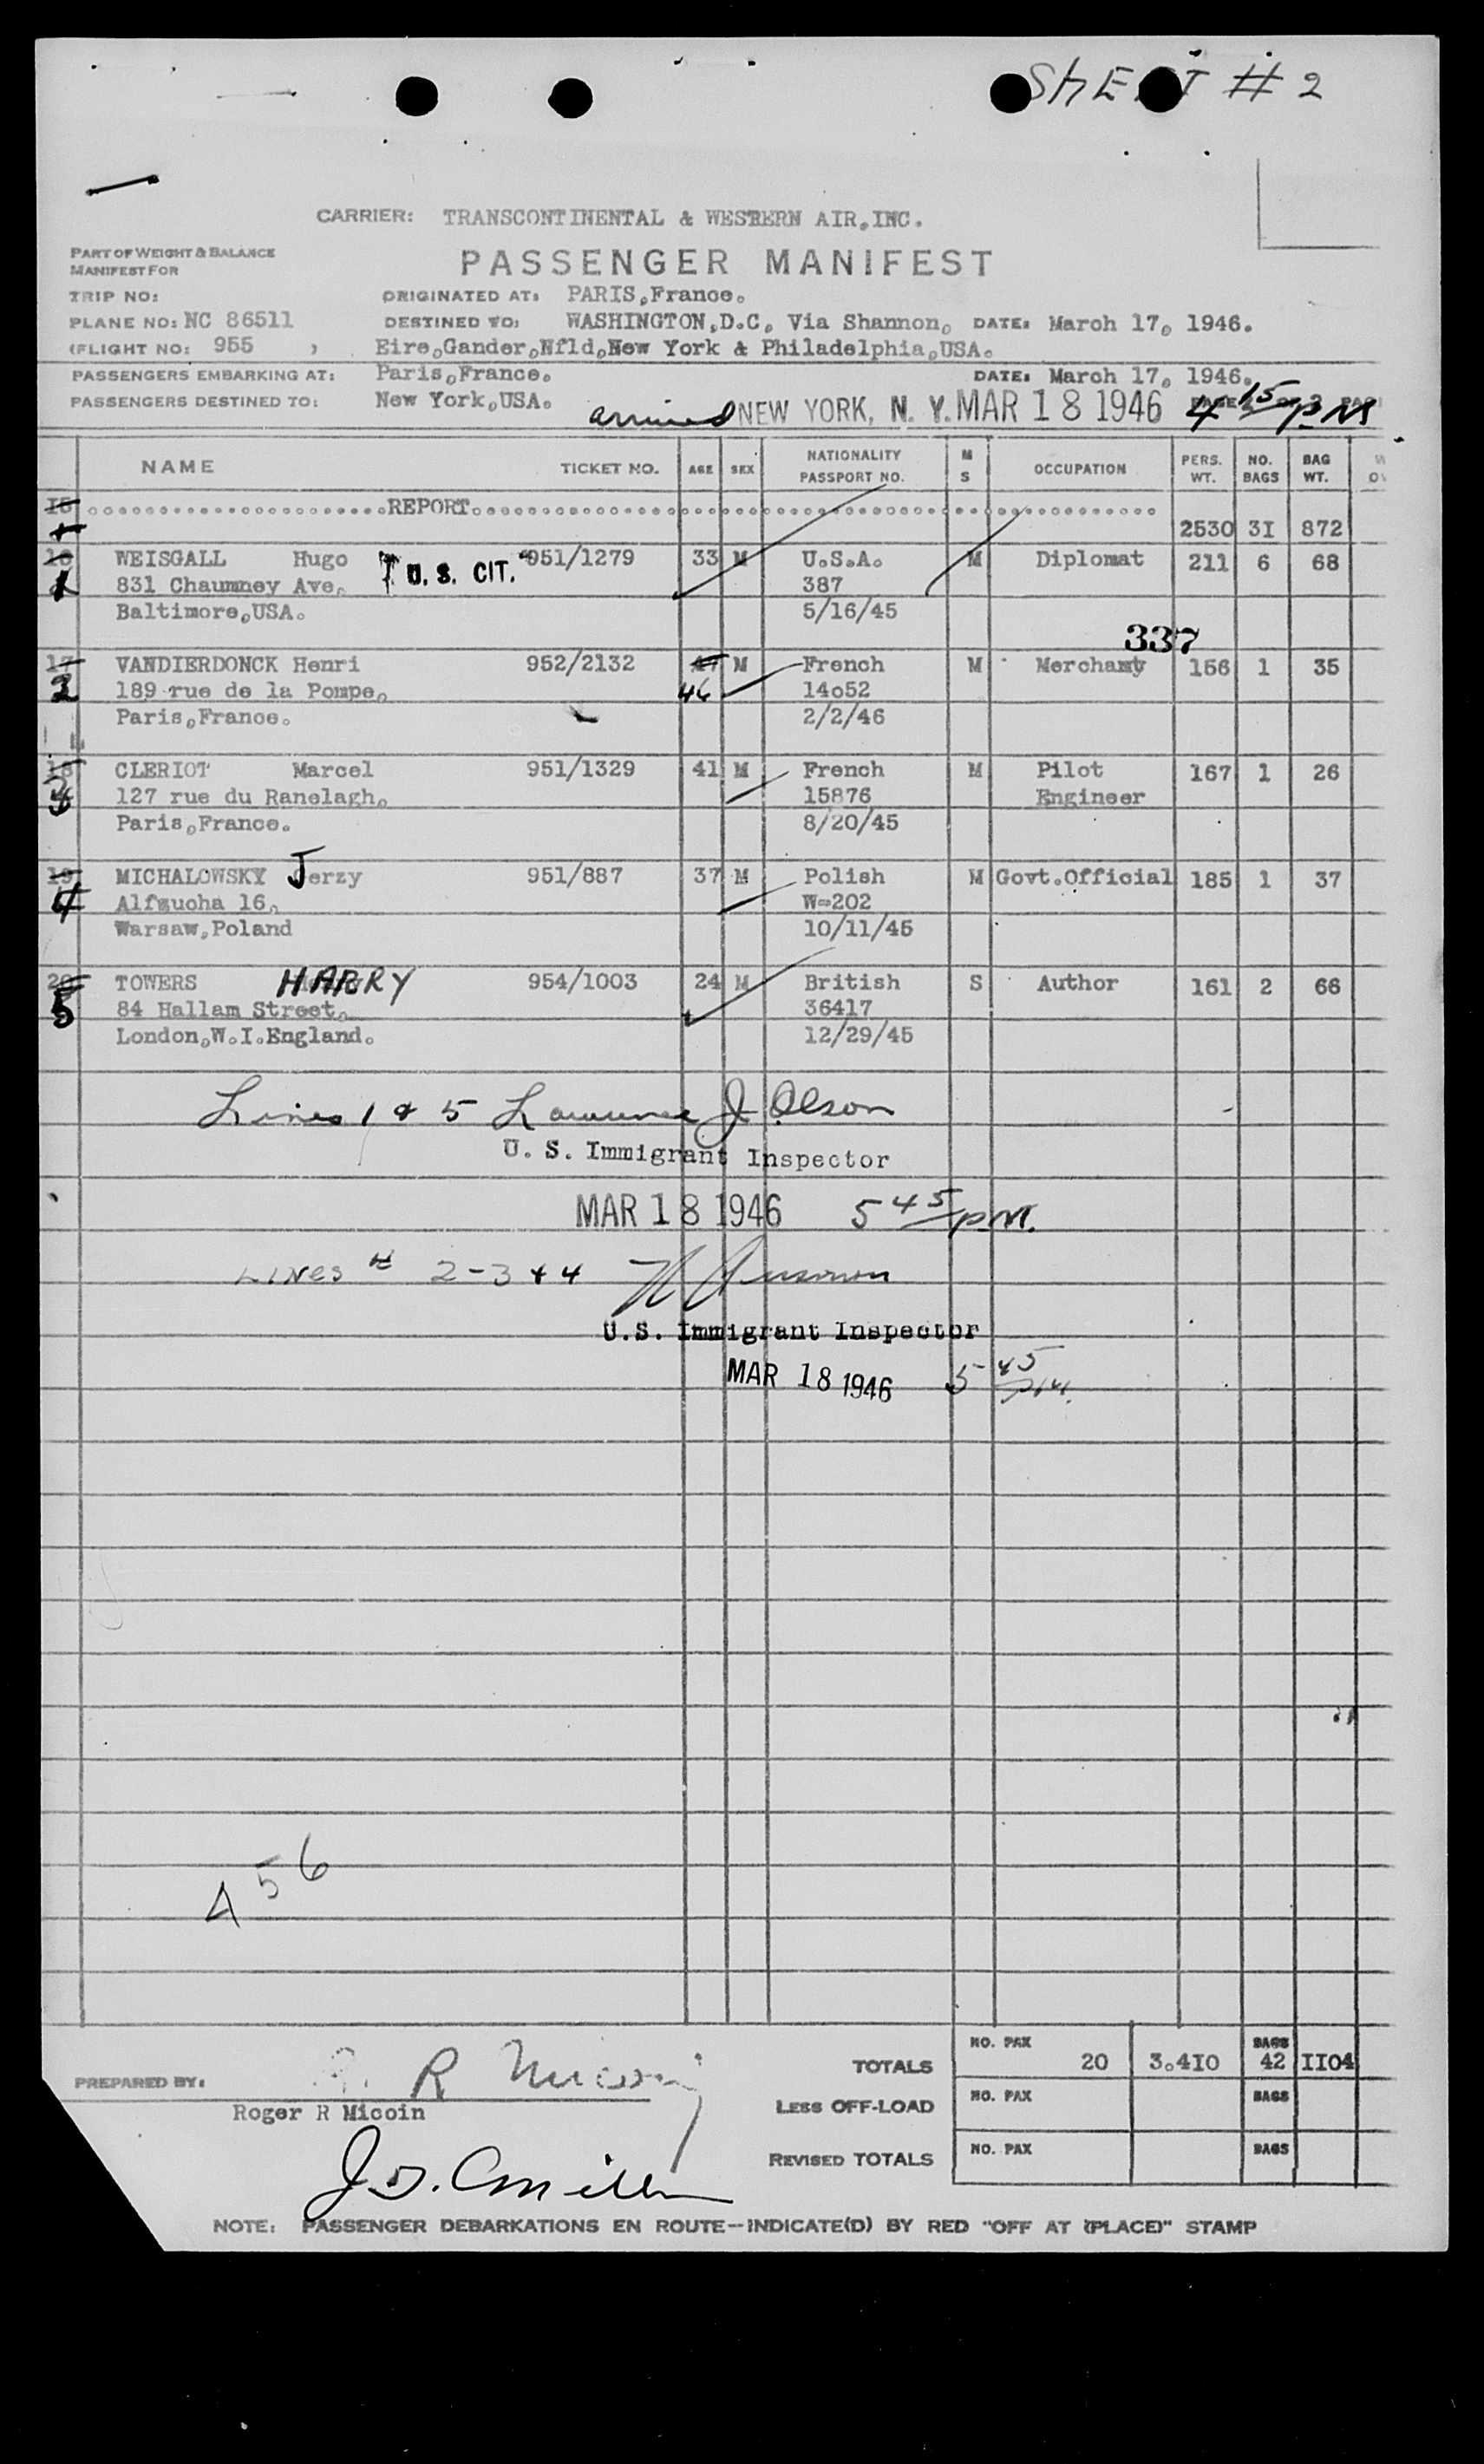 SHEET # 2
CARRIER: TRANSCONTINENTAL & WESTERN AIR,INC.
PART OF WEIGHT & BALANCE
MANIFEST FOR
PASSENGER MANIFEST
TRIP NO: ORIGINATED AT: PARIS,France.
PLANE NO: NC 86511 DESTINED TO: WASHINGTON,D.C. Via Shannon, DATE: March 17, 1946.
(FLIGHT NO: 955 ) Eire,Gander,Nfld,New York & Philadelphia,USA.
PASSENGERS EMBARKING AT: Paris,France. DATE: March 17, 1946.
PASSENGERS DESTINED TO: New York,USA.
arrived NEW YORK, N. Y. MAR 18 1946 4 15 P.M
NAME TICKET NO. AGE SEX NATIONALITY PASSPORT NO. M S OCCUPATION PERS. WT. NO. BAGS BAG WT.
15 REPORT
2530 3I 872
16 WEISGALL Hugo U. S. CIT. 951/1279 33 M U.S.A. M Diplomat 211 6 68
1 831 Chaumney Ave. 387
Baltimore,USA. 5/16/45
337
17 VANDIERDONCK Henri 952/2132 47 M French M Merchant 156 1 35
2 189 rue de la Pompe, 46 14o52
Paris,France. 2/2/46
18 CLERIOT Marcel 951/1329 41 M French M Pilot 167 1 26
3 127 rue du Ranelagh, 15876 Engineer
Paris,France. 8/20/45
19 MICHALOWSKY Jerzy 951/887 37 M Polish M Govt.Official 185 1 37
4 Alfzuoha 16, W-202
Warsaw,Poland 10/11/45
20 TOWERS HARRY 954/1003 24 M British S Author 161 2 66
5 84 Hallam Street, 36417
London,W.I.England. 12/29/45
Lines 1 & 5 Lawrence J Olson
U. S. Immigrant Inspector
MAR 18 1946 5 45 p.m.
LINES # 2-3 & 4
U.S. Immigrant Inspector
MAR 18 1946 5 45 P.M.
456
NO. PAX BAGS
TOTALS 20 3.4I0 42 II04
PREPARED BY: R Micoin
Roger R Micoin
LESS OFF-LOAD NO. PAX BAGS
REVISED TOTALS NO. PAX BAGS
NOTE: PASSENGER DEBARKATIONS EN ROUTE—INDICATE(D) BY RED "OFF AT (PLACE)" STAMP